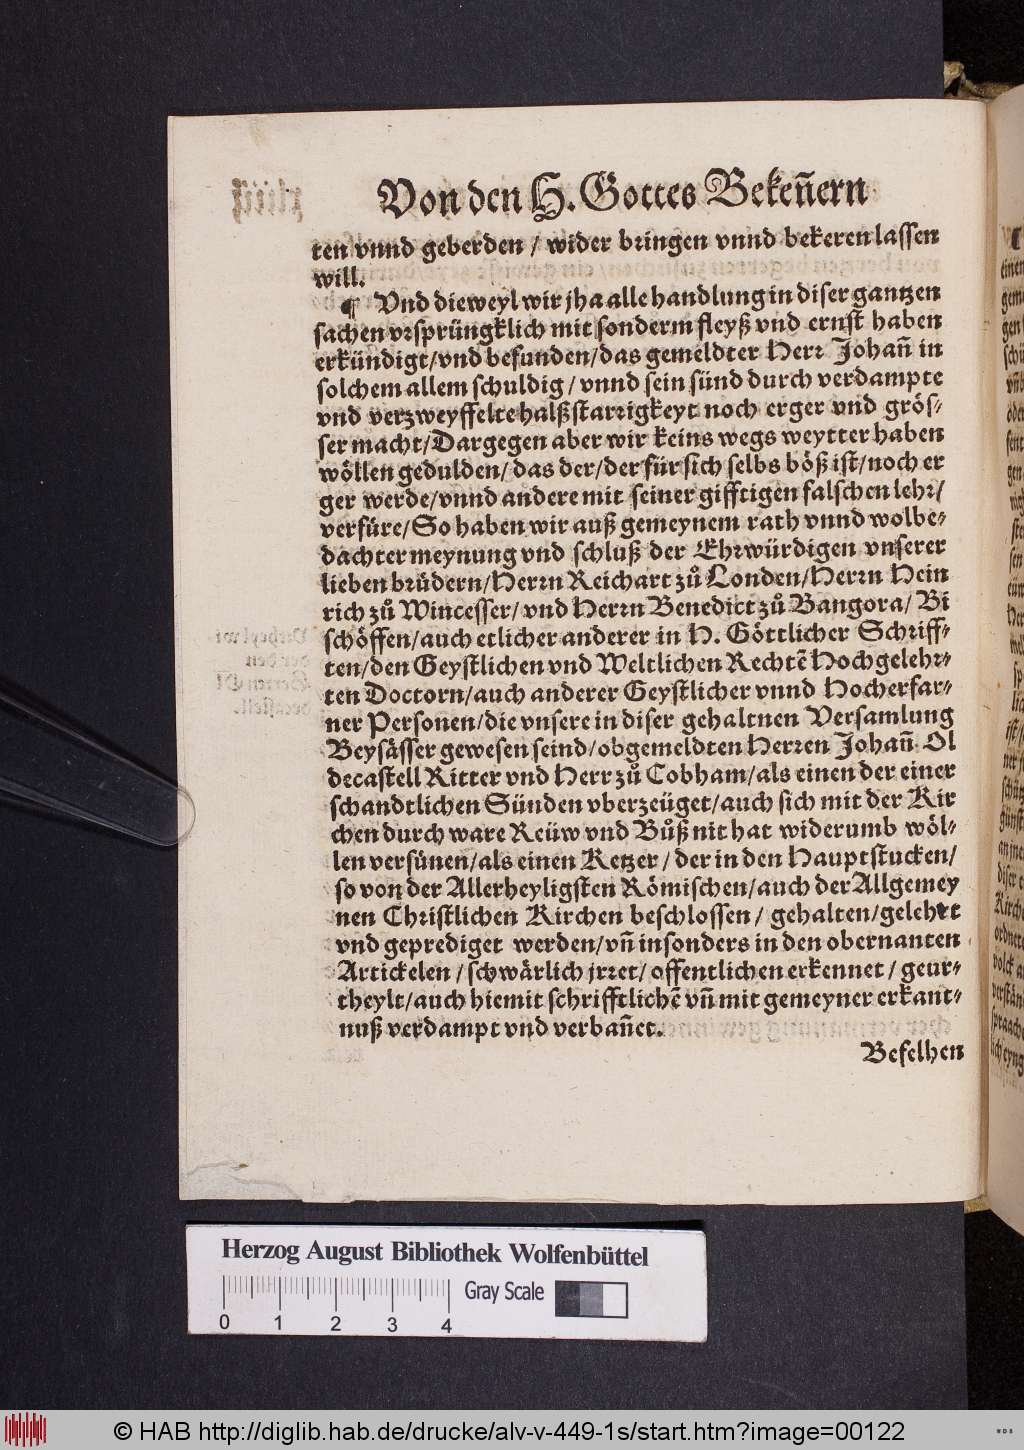 Von den H. Gottes Bekeñern
ten vnnd geberden / wider bringen vnnd bekeren lassen
will.
¶ Vnd dieweyl wir jha alle handlung in diser gantzen
sachen vrsprüngklich mit sonderm fleyß vnd ernst haben
erkündigt/vnd befunden/das gemeldter Herr Johañ in
solchem allem schuldig / vnnd sein sünd durch verdampte
vnd verzweyffelte halßstarrigkeyt noch erger vnd grös-
ser macht/Dargegen aber wir keins wegs weytter haben
wöllen gedulden/das der/der für sich selbs böß ist/noch er
ger werde/vnnd andere mit seiner gifftigen falschen lehr/
verfüre/So haben wir auß gemeynem rath vnnd wolbe-
dachter meynung vnd schluß der Ehrwürdigen vnserer
lieben brüdern/Herrn Reichart zů Londen/Herrn Hein
rich zů Wincesser/vnd Herrn Benedict zů Bangora/ Bi
schöffen/auch etlicher anderer in H. Göttlicher Schriff-
ten/den Geystlichen vnd Weltlichen Rechtē Hochgelehr-
ten Doctorn/auch anderer Geystlicher vnnd Hocherfar-
ner Personen/die vnsere in diser gehaltnen Versamlung
Beysässer gewesen seind/obgemeldten Herren Johañ Ol
decastell Ritter vnd Herr zů Cobham/als einen der einer
schandtlichen Sünden vberzeüget/auch sich mit der Kir
chen durch ware Reüw vnd Bůß nit hat widerumb wöl-
len versünen/als einen Ketzer / der in den Hauptstucken/
so von der Allerheyligsten Römischen/auch der Allgemey
nen Christlichen Kirchen beschlossen / gehalten/gelehrt
vnd geprediget werden/vñ insonders in den obernanten
Artickelen / schwärlich jrret/ offentlichen erkennet / geur-
theylt/auch hiemit schrifftlichē vñ mit gemeyner erkant-
nuß verdampt vnd verbañet.
Befelhen
Herzog August Bibliothek Wolfenbüttel
Gray Scale
0 1 2 3 4
© HAB http://diglib.hab.de/drucke/alv-v-449-1s/start.htm?image=00122